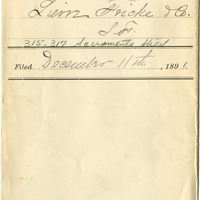 Lievre Fricke & Co.
S.F.
315-317 Sacramento Street
Filed December 11th, 1891.